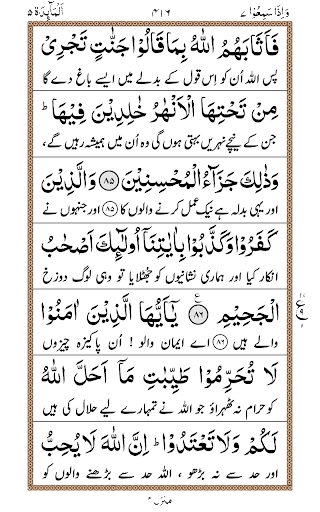 وَاِذَا سَمِعُوْا ۷ ۴۱۶ اَلْمَآئِدَة ۵
فَاَثَابَهُمُ اللّٰهُ بِمَا قَالُوْا جَنّٰتٍ تَجْرِيْ
پس اللہ اُن کو اِس قول کے بدلے میں ایسے باغ دے گا
مِنْ تَحْتِهَا الْاَنْهٰرُ خٰلِدِيْنَ فِيْهَا ؕ
جن کے نیچے نہریں بہتی ہوں گی وہ اُن میں ہمیشہ رہیں گے،
وَذٰلِكَ جَزَآءُ الْمُحْسِنِيْنَ ﴿۸۵﴾ وَالَّذِيْنَ
اور یہی بدلہ ہے نیک عمل کرنے والوں کا ﴿۸۵﴾ اور جنہوں نے
كَفَرُوْا وَكَذَّبُوْا بِاٰيٰتِنَاۤ اُولٰٓئِكَ اَصْحٰبُ
انکار کیا اور ہماری نشانیوں کو جھٹلایا تو وہی لوگ دوزخ
الْجَحِيْمِ ﴿۸۶﴾ ع يٰۤاَيُّهَا الَّذِيْنَ اٰمَنُوْا
والے ہیں ﴿۸۶﴾ اے ایمان والو ! اُن پاکیزہ چیزوں
لَا تُحَرِّمُوْا طَيِّبٰتِ مَاۤ اَحَلَّ اللّٰهُ
کو حرام نہ ٹھہراؤ جو اللہ نے تمہارے لیے حلال کی ہیں
لَكُمْ وَلَا تَعْتَدُوْا ؕ اِنَّ اللّٰهَ لَا يُحِبُّ
اور حد سے نہ بڑھو ، اللہ حد سے بڑھنے والوں کو
منزل ۲